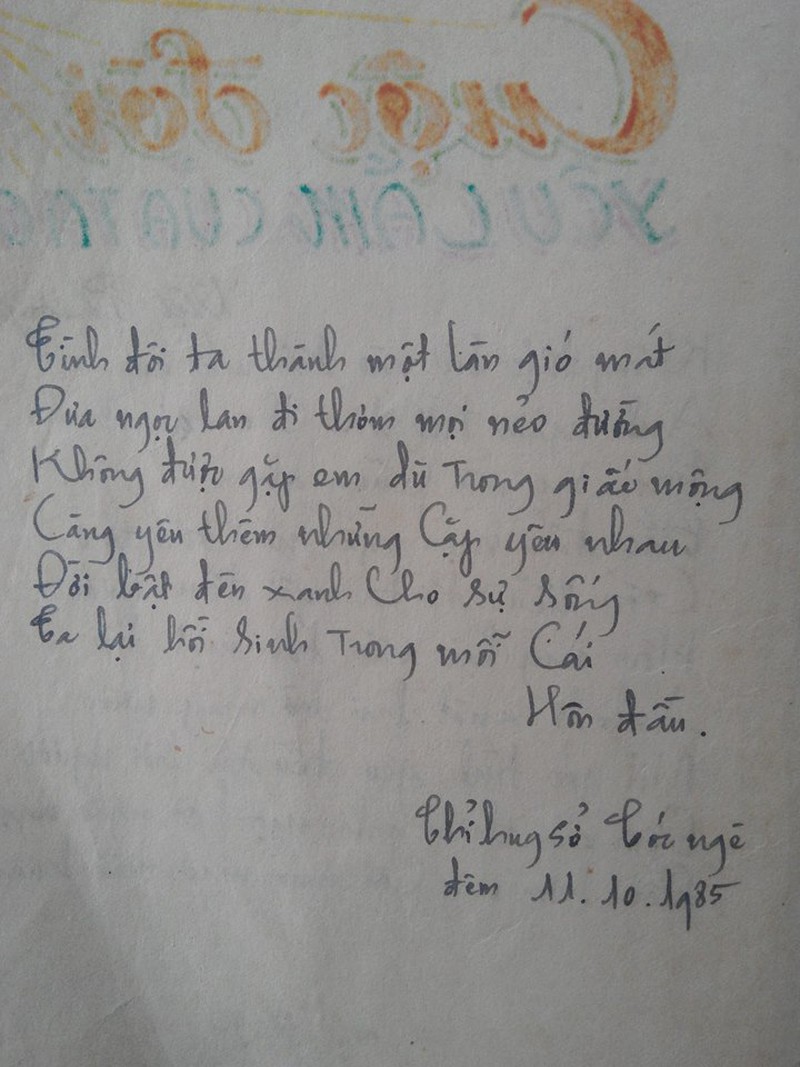 Cuộc đời
YÊU LẮM CỦA TAO
Tình đôi ta thành một làn gió mát
Đưa ngọc lan đi thơm mọi nẻo đường
Không được gặp em dù Trong giấc mộng
Càng yêu thêm những Cặp yêu nhau
Đời bật đèn xanh Cho sự sống
Ta lại hồi sinh Trong mỗi Cái
Hôn đầu.
đêm 11.10.1985